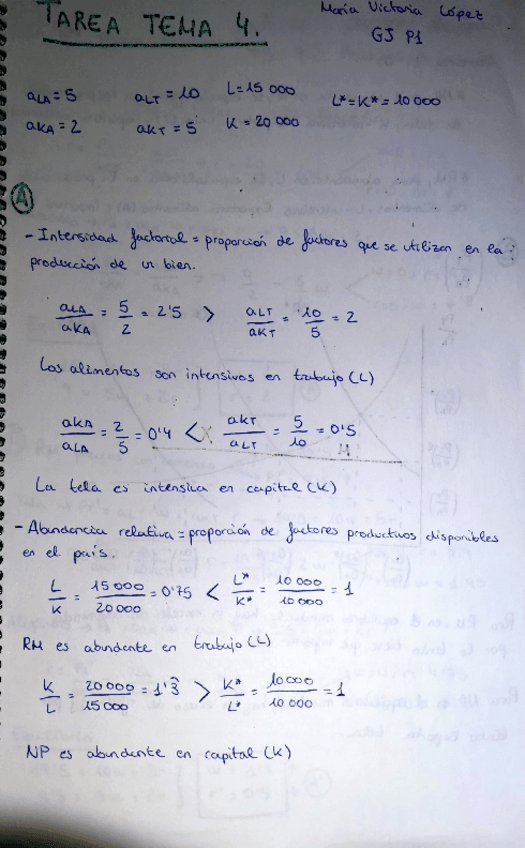 TAREA TEMA 4.
María Victoria López
GJ P1
aLA = 5 aLT = 10 L = 15 000 L* = K* = 10 000
aKA = 2 aKT = 5 K = 20 000
A
- Intensidad factorial = proporción de factores que se utilizan en la
producción de un bien.
aLA/aKA = 5/2 = 2'5 > aLT/aKT = 10/5 = 2
Los alimentos son intensivos en trabajo (L)
aKA/aLA = 2/5 = 0'4 < aKT/aLT = 5/10 = 0'5
La tela es intensiva en capital (K)
- Abundancia relativa = proporción de factores productivos disponibles
en el país.
L/K = 15 000/20 000 = 0'75 < L*/K* = 10 000/10 000 = 1
RM es abundante en trabajo (L)
K/L = 20 000/15 000 = 1'3̂ > K*/L* = 10 000/10 000 = 1
NP es abundante en capital (K)